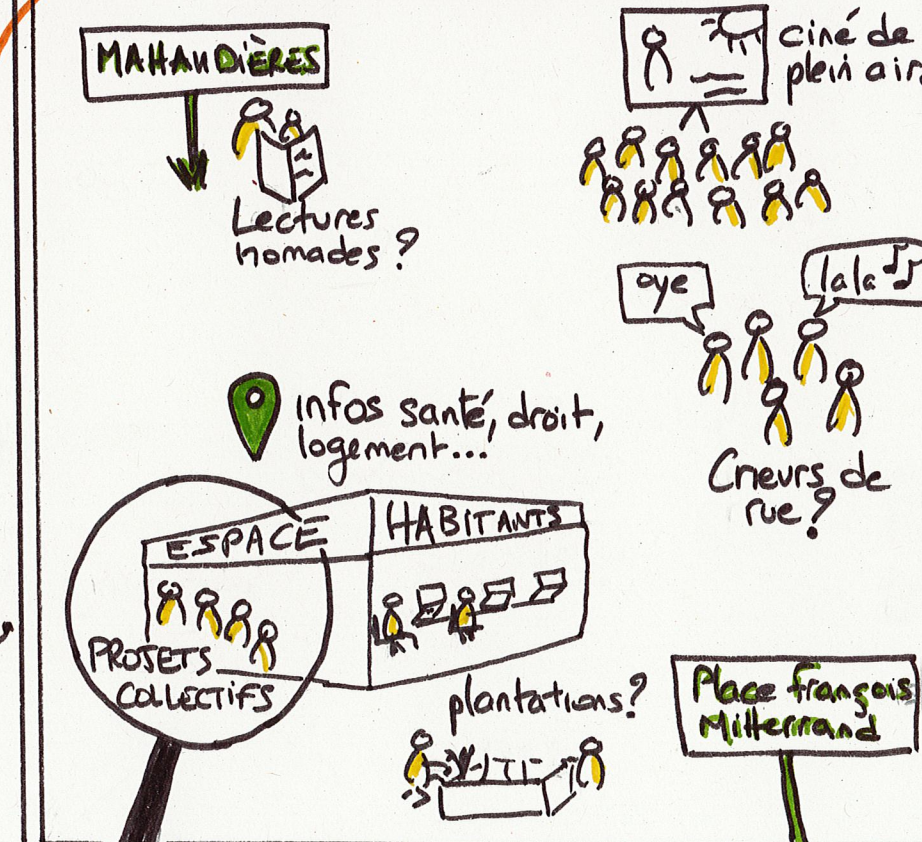 MAHAUDIÈRES
Lectures
nomades ?
ciné de
plein air
oye
lala
Crieurs de
rue ?
infos santé, droit,
logement...
ESPACE
HABITANTS
PROJETS
COLLECTIFS
plantations ?
Place François
Mitterrand